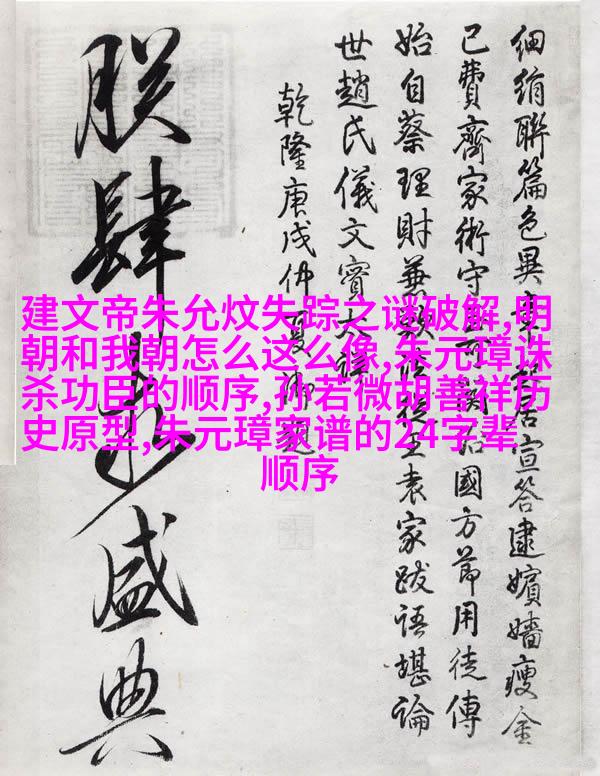 細絹聯篇色異居宣答逮嬪嬙瘦金
已費齊家術守國方節用徒傳
始自蔡理財兼王袁家跋語堪論
世趙氏儀文實大
乾隆庚戌仲夏御題
肆盛典
建文帝朱允炆失踪之谜破解,明
朝和我朝怎么这么像,朱元璋诛
杀功臣的顺序,孙若微胡善祥历
史原型,朱元璋家谱的24字辈
顺序